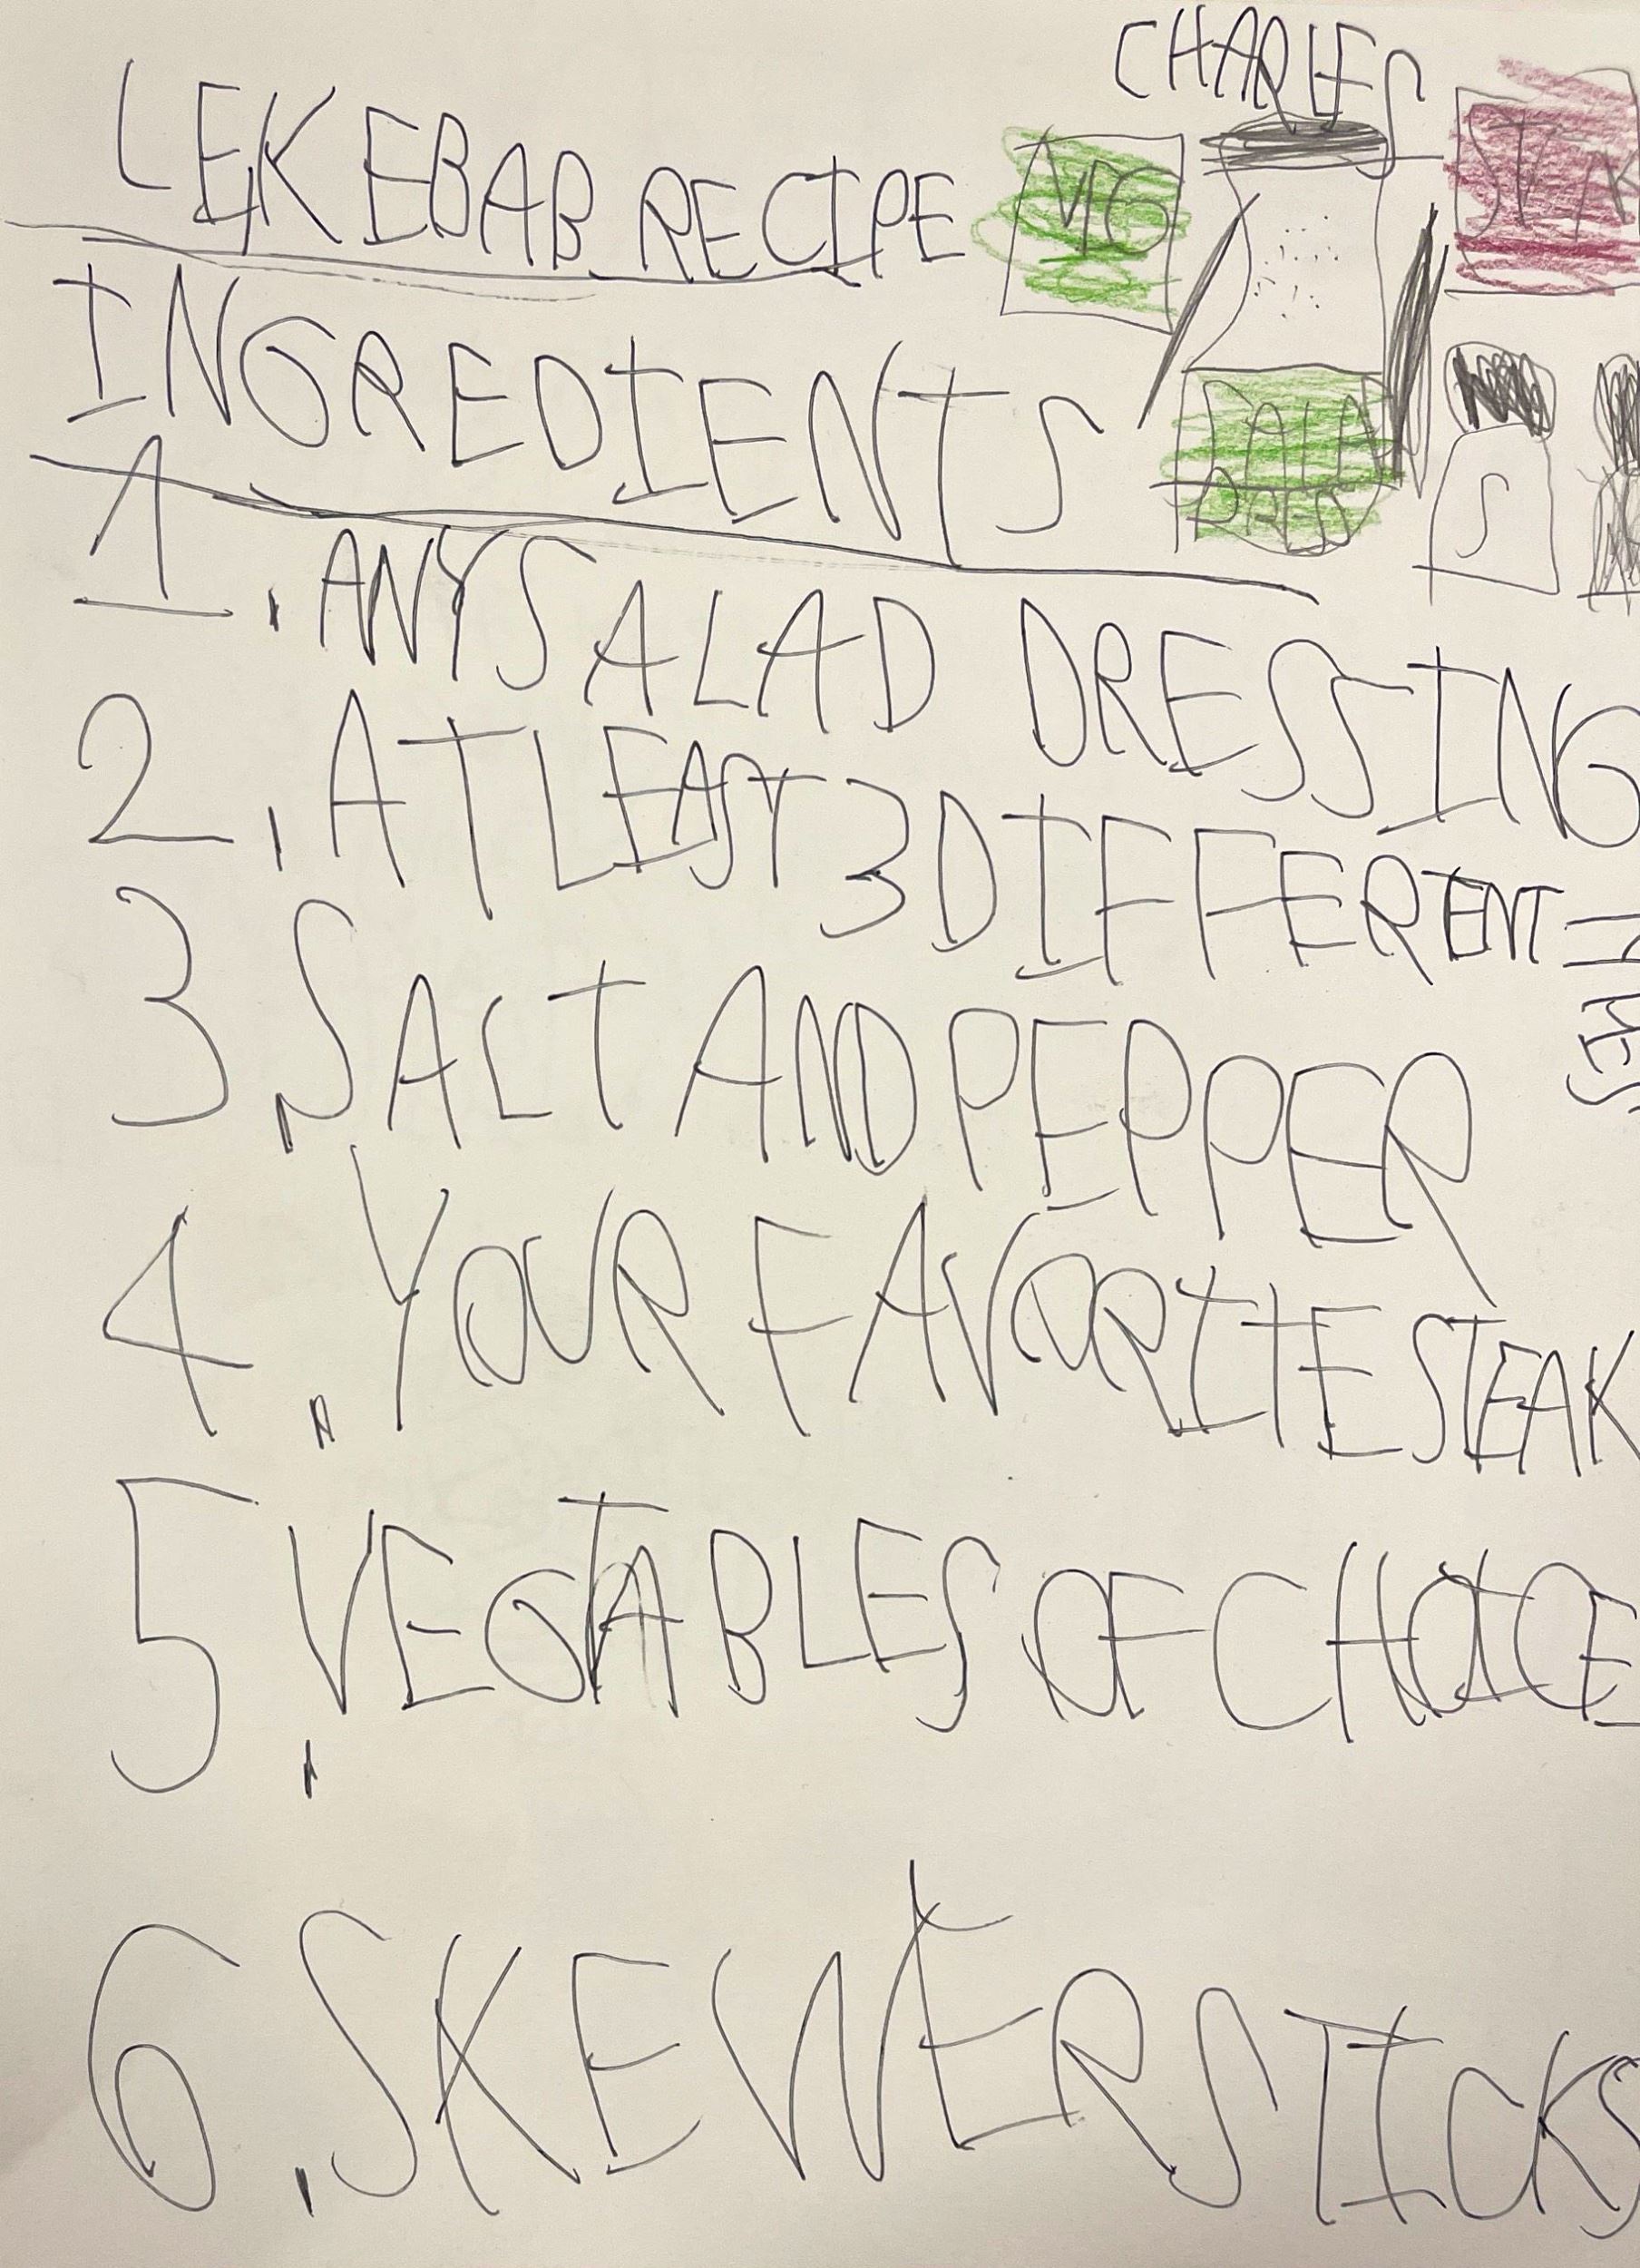 CHARLES
LE KEBAB RECIPE
S
INGREDIENTS
1. ANY SALAD DRESSING
2. AT LEAST 3 DIFFERENT
3. SALT AND PEPPER
4. YOUR FAVORITE STEAK
5. VEGTABLES OF CHOICE
6. SKEWER STICKS